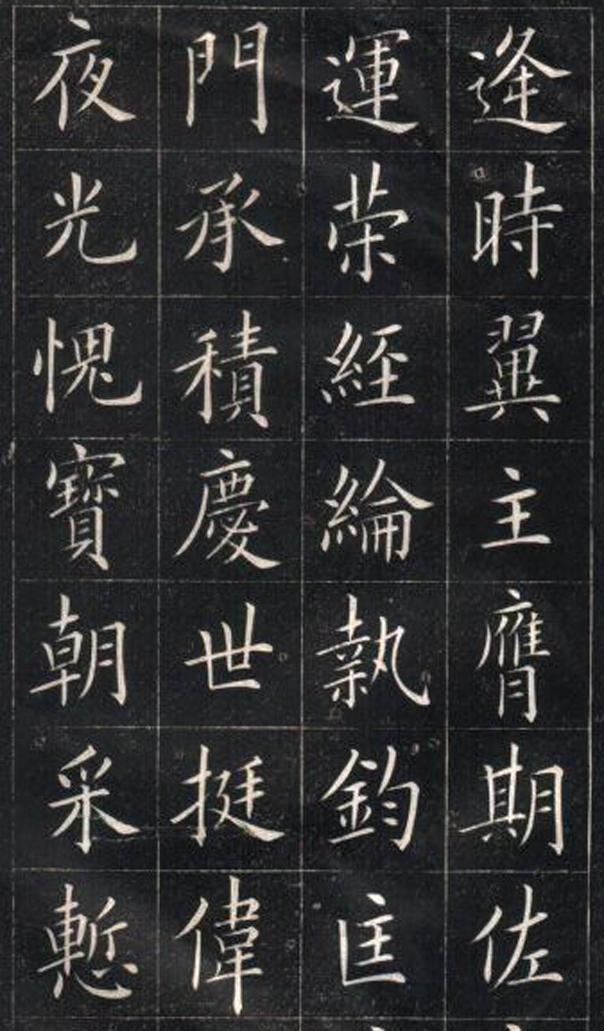 逄時翼主膺期佐
運榮經綸執鈞匡
門承積慶世挺偉
夜光愧寶朝采慙